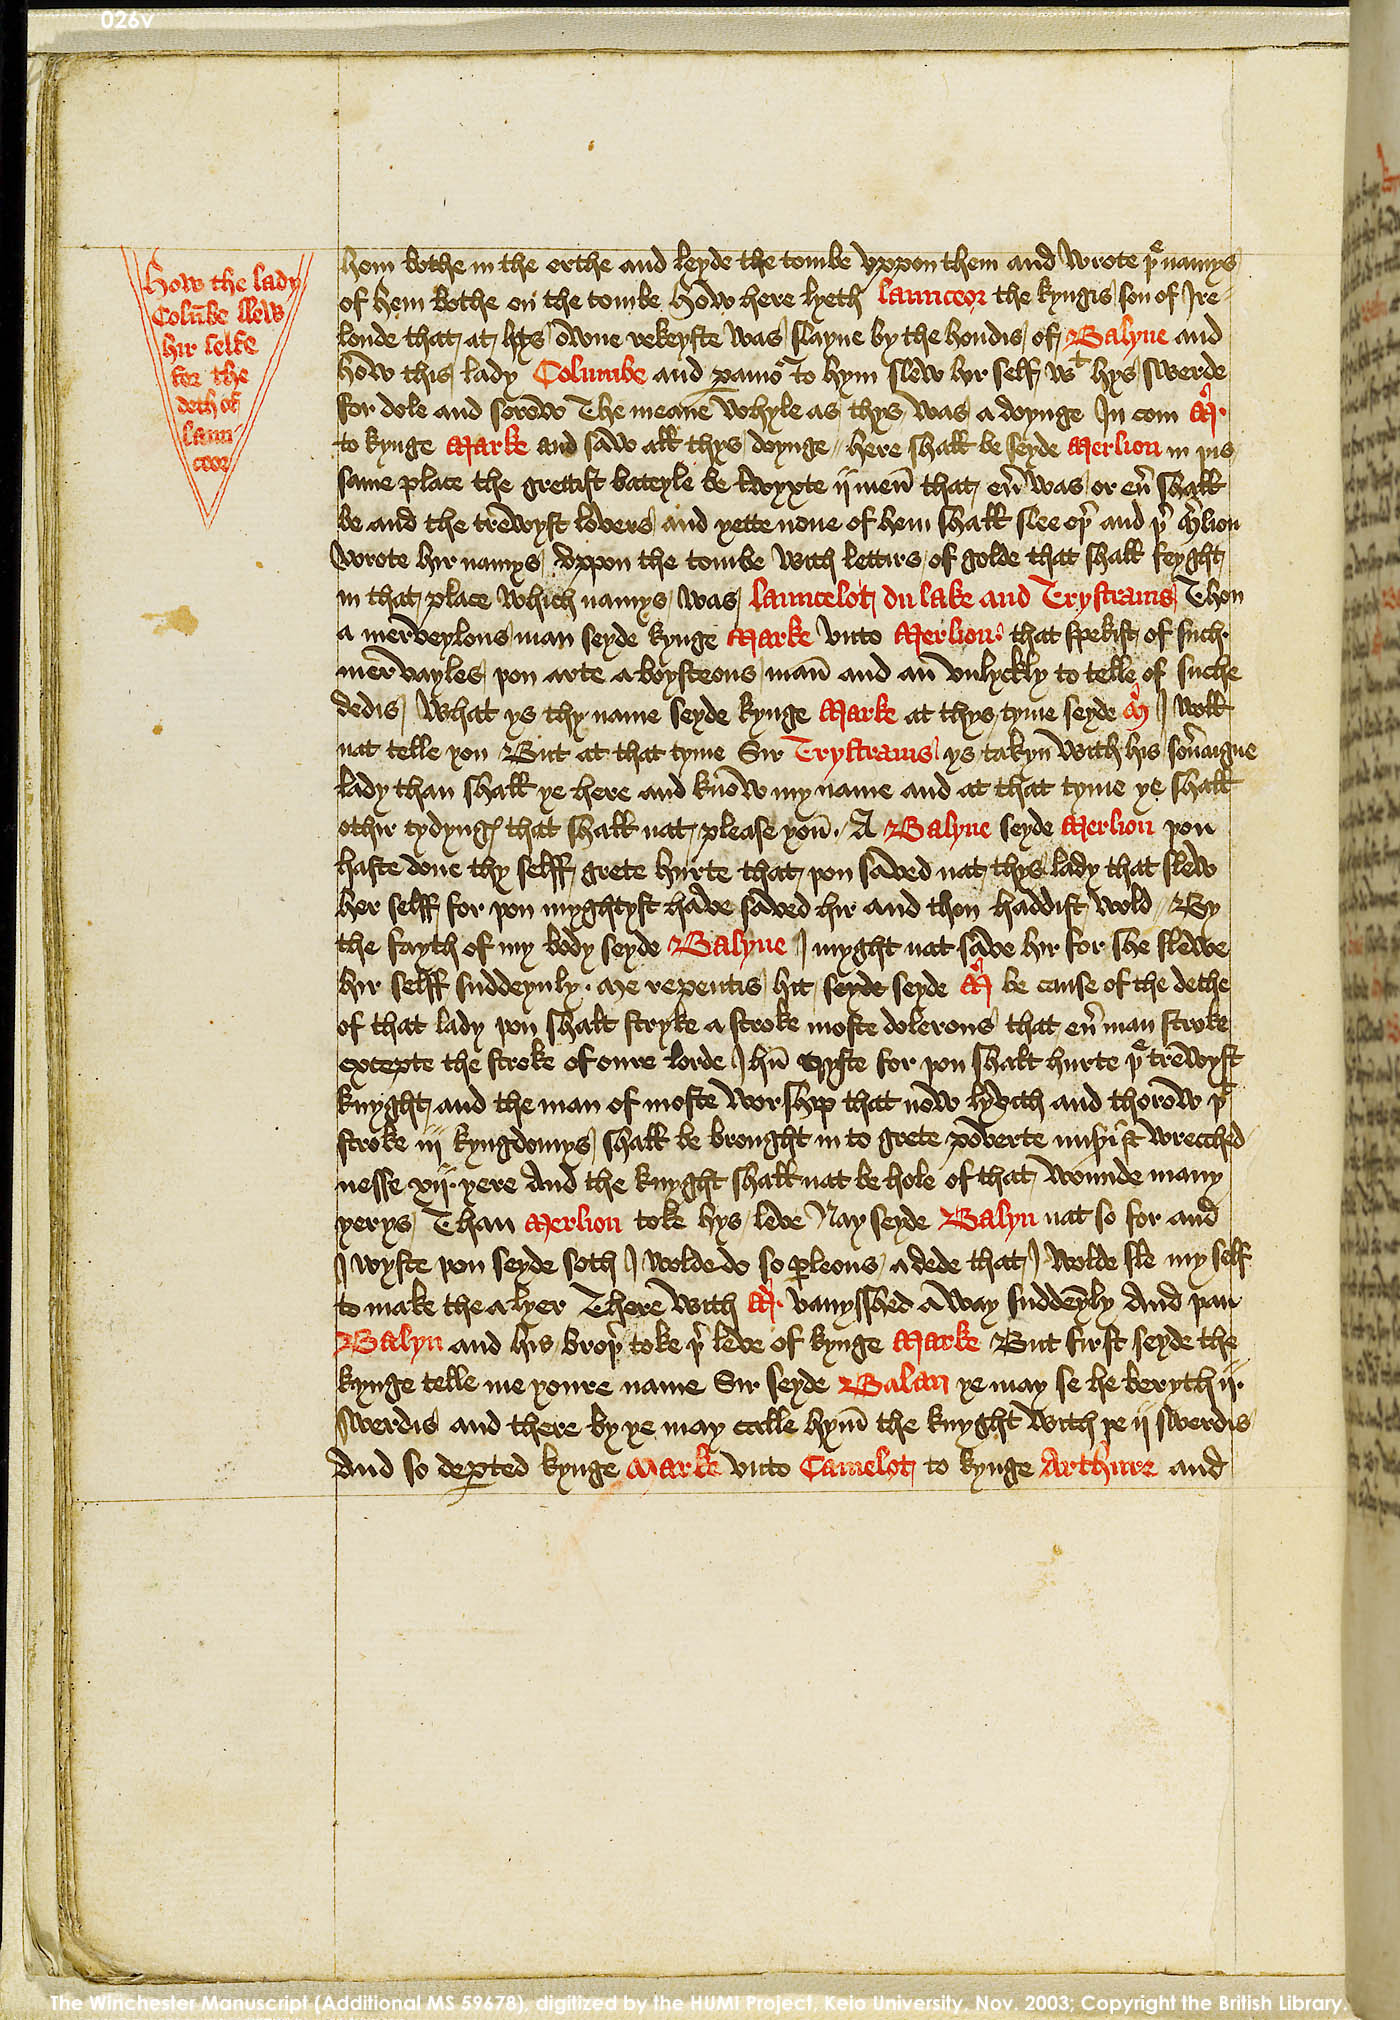 026v
How the lady
Colūbe slew
hir selfe
for the
deth of
laun
ceor
hom bothe in the erthe and leyde the tombe vppon them and wrote þͤ namys
of hem bothe on the tombe How here lyeth launceor the kyngis son of Ire-
londe that at hys owne rekeyste was slayne by the hondis of Balyne and
how this lady Columbe and ꝑamoͬ to hym slew hyr self wᵗ hys swerde
for dole and sorow The meane whyle as thys was a doynge In com M̉.
to kynge Marke and saw all thys doynge // here shall be seyde Merlion in þis
same place the grettist bateyle be twyxte ij men̄ that eu̓ was or eu̓ shall
be and the trewyst lovers and yette none of hem shall slee oþ̓ and þ̓ M̓lion
wrote hir namys vppon the tombe with lettirs of golde that shall feyght
in that place which namys was launcelot du lake and Trystrams Thou
a merveylous man seyde kynge Marke vnto Merlion. that spekist of such.
mervayles þou arte a boysteous man̄ and an̄ vnlyckly to telle of suche
dedis What ys thy name seyde kynge Marke at thys tyme seyde M̉ I woll
nat telle you But at that tyme Sir Trystrams ys takyn with his sou̓aigne
lady than shall ye here and know my name and at that tyme ye shall
othir tydyngꝭ that shall nat please you̅. A Balyne seyde Merlion þou
haste done thy selff grete hurte that þou saved nat thys lady that slew
her selff for þou myghtyst have saved hir and thou haddist wold // By
the fayth of my body seyde Balyne I myght nat save hir for she slewe
hir selff suddeynly. Me repentis hit seyde seyde M̉ be cause of the dethe
of that lady þou shalt stryke a stroke moste dolerous that eu̓ man stroke
excepte the stroke of oure lorde I hū Cryste for þou shalt hurte þͤ trewyst
knyght and the man of moste worship that now lyvith and thorow þᵗ
stroke iij kyngdomys shall be brought in to grete poverte mis̓ist wrecched
nesse xij. yere And the knyght shall nat be hole of that wounde many
yerys Than Merlion toke hys leve Nay seyde Balyn nat so for and
I wyste þou seyde soth I wolde do so ꝑleous a dede that I wolde sle my self
to make the a lyer There with M̉. vanysshed a way suddēyly And þan
Balyn and his broþ̓ toke þ̓ leve of kynge Marke But first seyde the
kynge telle me youre name Sir seyde Balan ye may se he beryth ij.
swerdis and there by ye may calle hym̄ the knyght with þe ij swerdis
And so deꝑted kynge Marke vnto Camelot to kynge Arthure and
The Winchester Manuscript (Additional MS 59678), digitized by the HUMI Project, Keio University, Nov. 2003; Copyright the British Library.